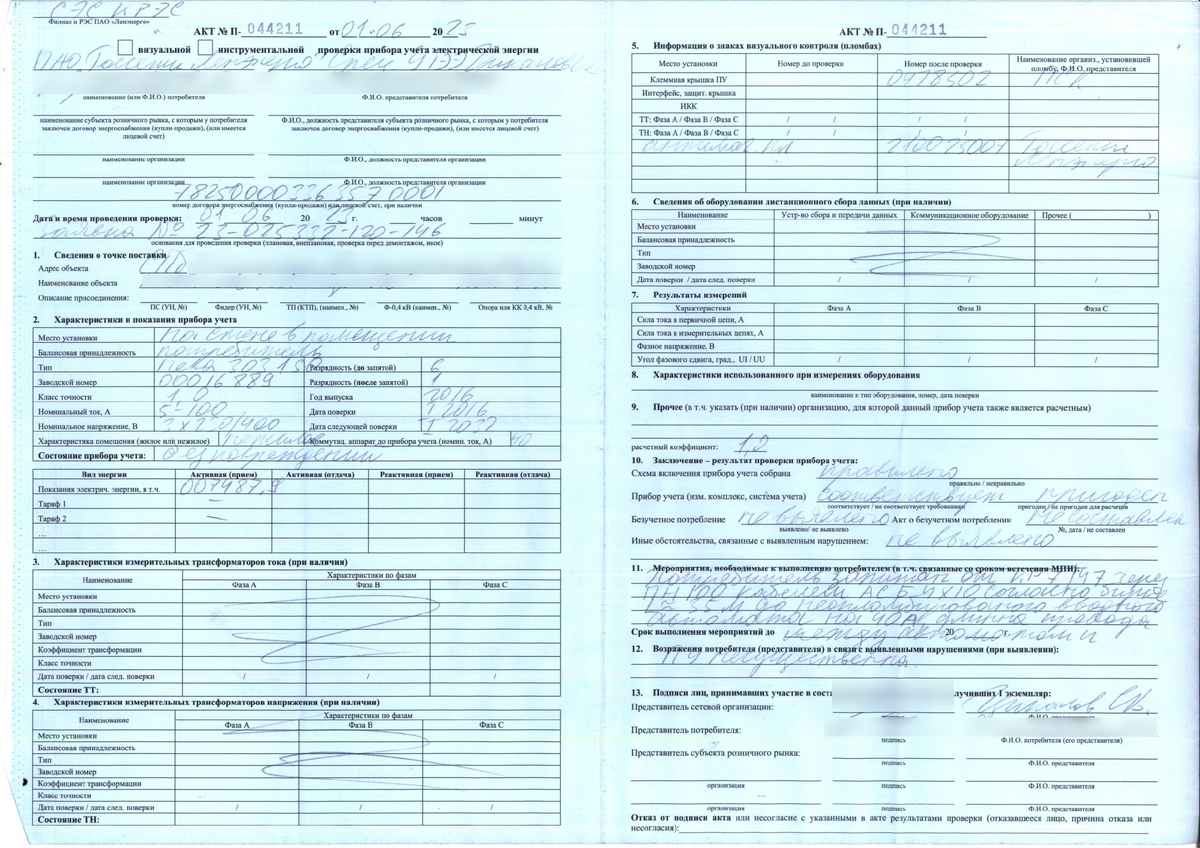 СЭС и РЭС
Филиал и РЭС ПАО «Ленэнерго»
АКТ № П- 044211 от 01.06 20 23
визуальной инструментальной проверки прибора учета электрической энергии
ПАО "Россети Ленэнерго"
наименование (или Ф.И.О.) потребителя Ф.И.О. представителя потребителя
наименование субъекта розничного рынка, с которым у потребителя заключен договор энергоснабжения (купли-продажи), (или имеется лицевой счет)
Ф.И.О., должность представителя субъекта розничного рынка, с которым у потребителя заключен договор энергоснабжения (купли-продажи), (или имеется лицевой счет)
наименование организации Ф.И.О., должность представителя организации
наименование организации Ф.И.О., должность представителя организации
78250000336357 0001
номер договора энергоснабжения (купли-продажи) или лицевой счет, при наличии
Дата и время проведения проверки: 01 06 20 23 г. часов минут
заявка № 23-025332-120-146
основания для проведения проверки (плановая, внеплановая, проверка перед демонтажом, иное)
1. Сведения о точке поставки
Адрес объекта СПб
Наименование объекта
Описание присоединения:
ПС (УН, №) Фидер (УН, №) ТП (КТП), (наимен., №) Ф-0,4 кВ (наимен., №) Опора или КК 0,4 кВ, №
2. Характеристики и показания прибора учета
Место установки На стене в помещении
Балансовая принадлежность потребитель
Тип Нева 303 1S0 Разрядность (до запятой) 6
Заводской номер 00016889 Разрядность (после запятой) 1
Класс точности 1,0 Год выпуска 2016
Номинальный ток, А 5-100 Дата поверки I 2016
Номинальное напряжение, В 3x230/400 Дата следующей поверки I 2032
Характеристика помещения (жилое или нежилое) нежилое Коммутац. аппарат до прибора учета (номин. ток, А) 40
Состояние прибора учета: без повреждений
Вид энергии Активная (прием) Активная (отдача) Реактивная (прием) Реактивная (отдача)
Показания электрич. энергии, в т.ч. 007487,9
Тариф 1 —
Тариф 2 —
...
...
3. Характеристики измерительных трансформаторов тока (при наличии)
Наименование Характеристики по фазам
Фаза А Фаза В Фаза С
Место установки
Балансовая принадлежность
Тип
Заводской номер
Коэффициент трансформации
Класс точности
Дата поверки / дата след. поверки / / /
Состояние ТТ:
4. Характеристики измерительных трансформаторов напряжения (при наличии)
Наименование Характеристики по фазам
Фаза А Фаза В Фаза С
Место установки
Балансовая принадлежность
Тип
Заводской номер
Коэффициент трансформации
Класс точности
Дата поверки / дата след. поверки / / /
Состояние ТН:
АКТ № П- 044211
5. Информация о знаках визуального контроля (пломбах)
Место установки Номер до проверки Номер после проверки Наименование организ., установившей пломбу, Ф.И.О. представителя
Клеммная крышка ПУ 0978502
Интерфейс, защит. крышка
ИКК
ТТ: Фаза А / Фаза В / Фаза С / / / /
ТН: Фаза А / Фаза В / Фаза С / / / /
антимаг пл 210025007 Россети
Ленэнерго
6. Сведения об оборудовании дистанционного сбора данных (при наличии)
Наименование Устр-во сбора и передачи данных Коммуникационное оборудование Прочее ( )
Место установки
Балансовая принадлежность
Тип
Заводской номер
Дата поверки / дата след. поверки / / /
7. Результаты измерений
Характеристики Фаза А Фаза В Фаза С
Сила тока в первичной цепи, А
Сила тока в измерительных цепях, А
Фазное напряжение, В
Угол фазового сдвига, град., UI / UU / / /
8. Характеристики использованного при измерениях оборудования
наименование и тип оборудования, номер, дата поверки
9. Прочее (в т.ч. указать (при наличии) организацию, для которой данный прибор учета также является расчетным)
расчетный коэффициент: 1,2
10. Заключение – результат проверки прибора учета:
Схема включения прибора учета собрана правильно
правильно / неправильно
Прибор учета (изм. комплекс, система учета) соответствует пригоден
соответствует / не соответствует требованиям пригоден / не пригоден для расчетов
Безучетное потребление не выявлено Акт о безучетном потреблении Не составлен
выявлено/ не выявлено №, дата / не составлен
Иные обстоятельства, связанные с выявленным нарушением: не выявлено
11. Мероприятия, необходимые к выполнению потребителем (в т.ч. связанные со сроком истечения МПИ):
Потребитель запитан от КР7147 через
ПН100 кабелем АСБ-4х10, согласно бирке
≈ 35 м до неопломбированного вводного
автомата на 40А, длина провода
Срок выполнения мероприятий до между автоматом и 20 г.
12. Возражения потребителя (представителя) в связи с выявленными нарушениями (при выявлении):
ПУ несущественна
13. Подписи лиц, принимавших участие в соста лучивших 1 экземпляр:
Представитель сетевой организации:
Представитель потребителя:
подпись Ф.И.О. потребителя (его представителя)
Представитель субъекта розничного рынка:
подпись Ф.И.О. представителя
организация подпись Ф.И.О. представителя
организация подпись Ф.И.О. представителя
Отказ от подписи акта или несогласие с указанными в акте результатами проверки (отказавшееся лицо, причина отказа или несогласия):